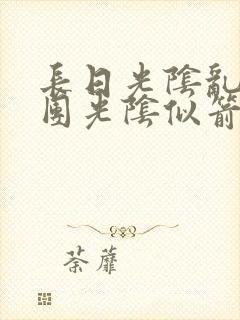 長日光陰亂
團光陰似箭
荼蘼